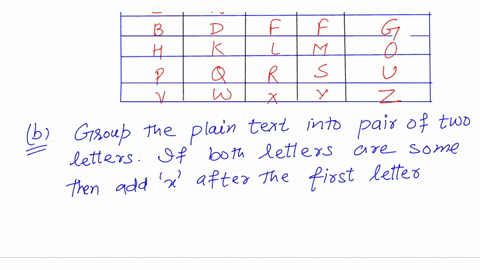 B D F F G
H K L M O
P Q R S U
V W X Y Z
(b) Group the plain text into pair of two
letters. If both letters are some
then add 'x' after the first letter